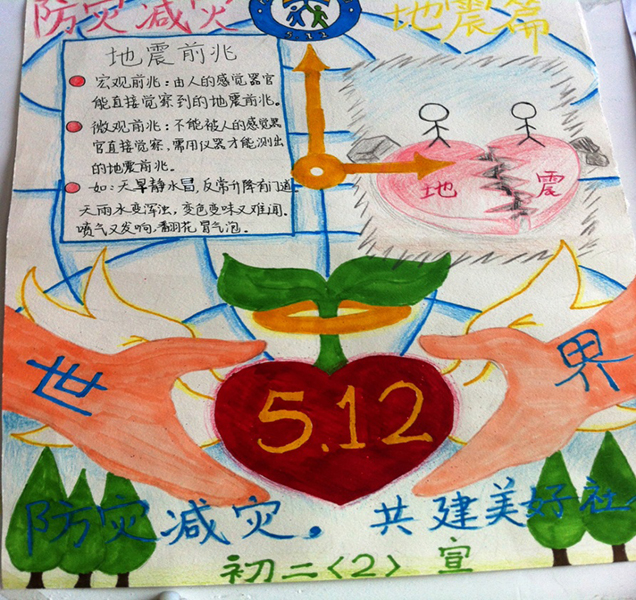 防灾减灾
地震篇
5.12
地震前兆
宏观前兆：由人的感觉器官
能直接觉察到的地震前兆。
微观前兆：不能被人的感觉器
官直接觉察，需用仪器才能测出
的地震前兆。
如：天旱静水昌，反常升降有门道
天雨水变浑浊，变色变味又难闻.
喷气又发响，翻花冒气泡.
地 震
世界
5.12
防灾减灾，共建美好社
初二<2> 宣